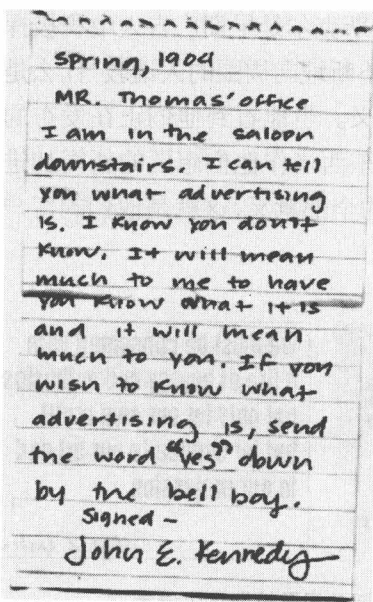 Spring, 1904
MR. Thomas' office
I am in the saloon
downstairs. I can tell
you what advertising
is. I know you don't
know. It will mean
much to me to have
you know what it is
and it will mean
much to you. If you
wish to know what
advertising is, send
the word "Yes" down
by the bell boy.
Signed -
John E. Kennedy